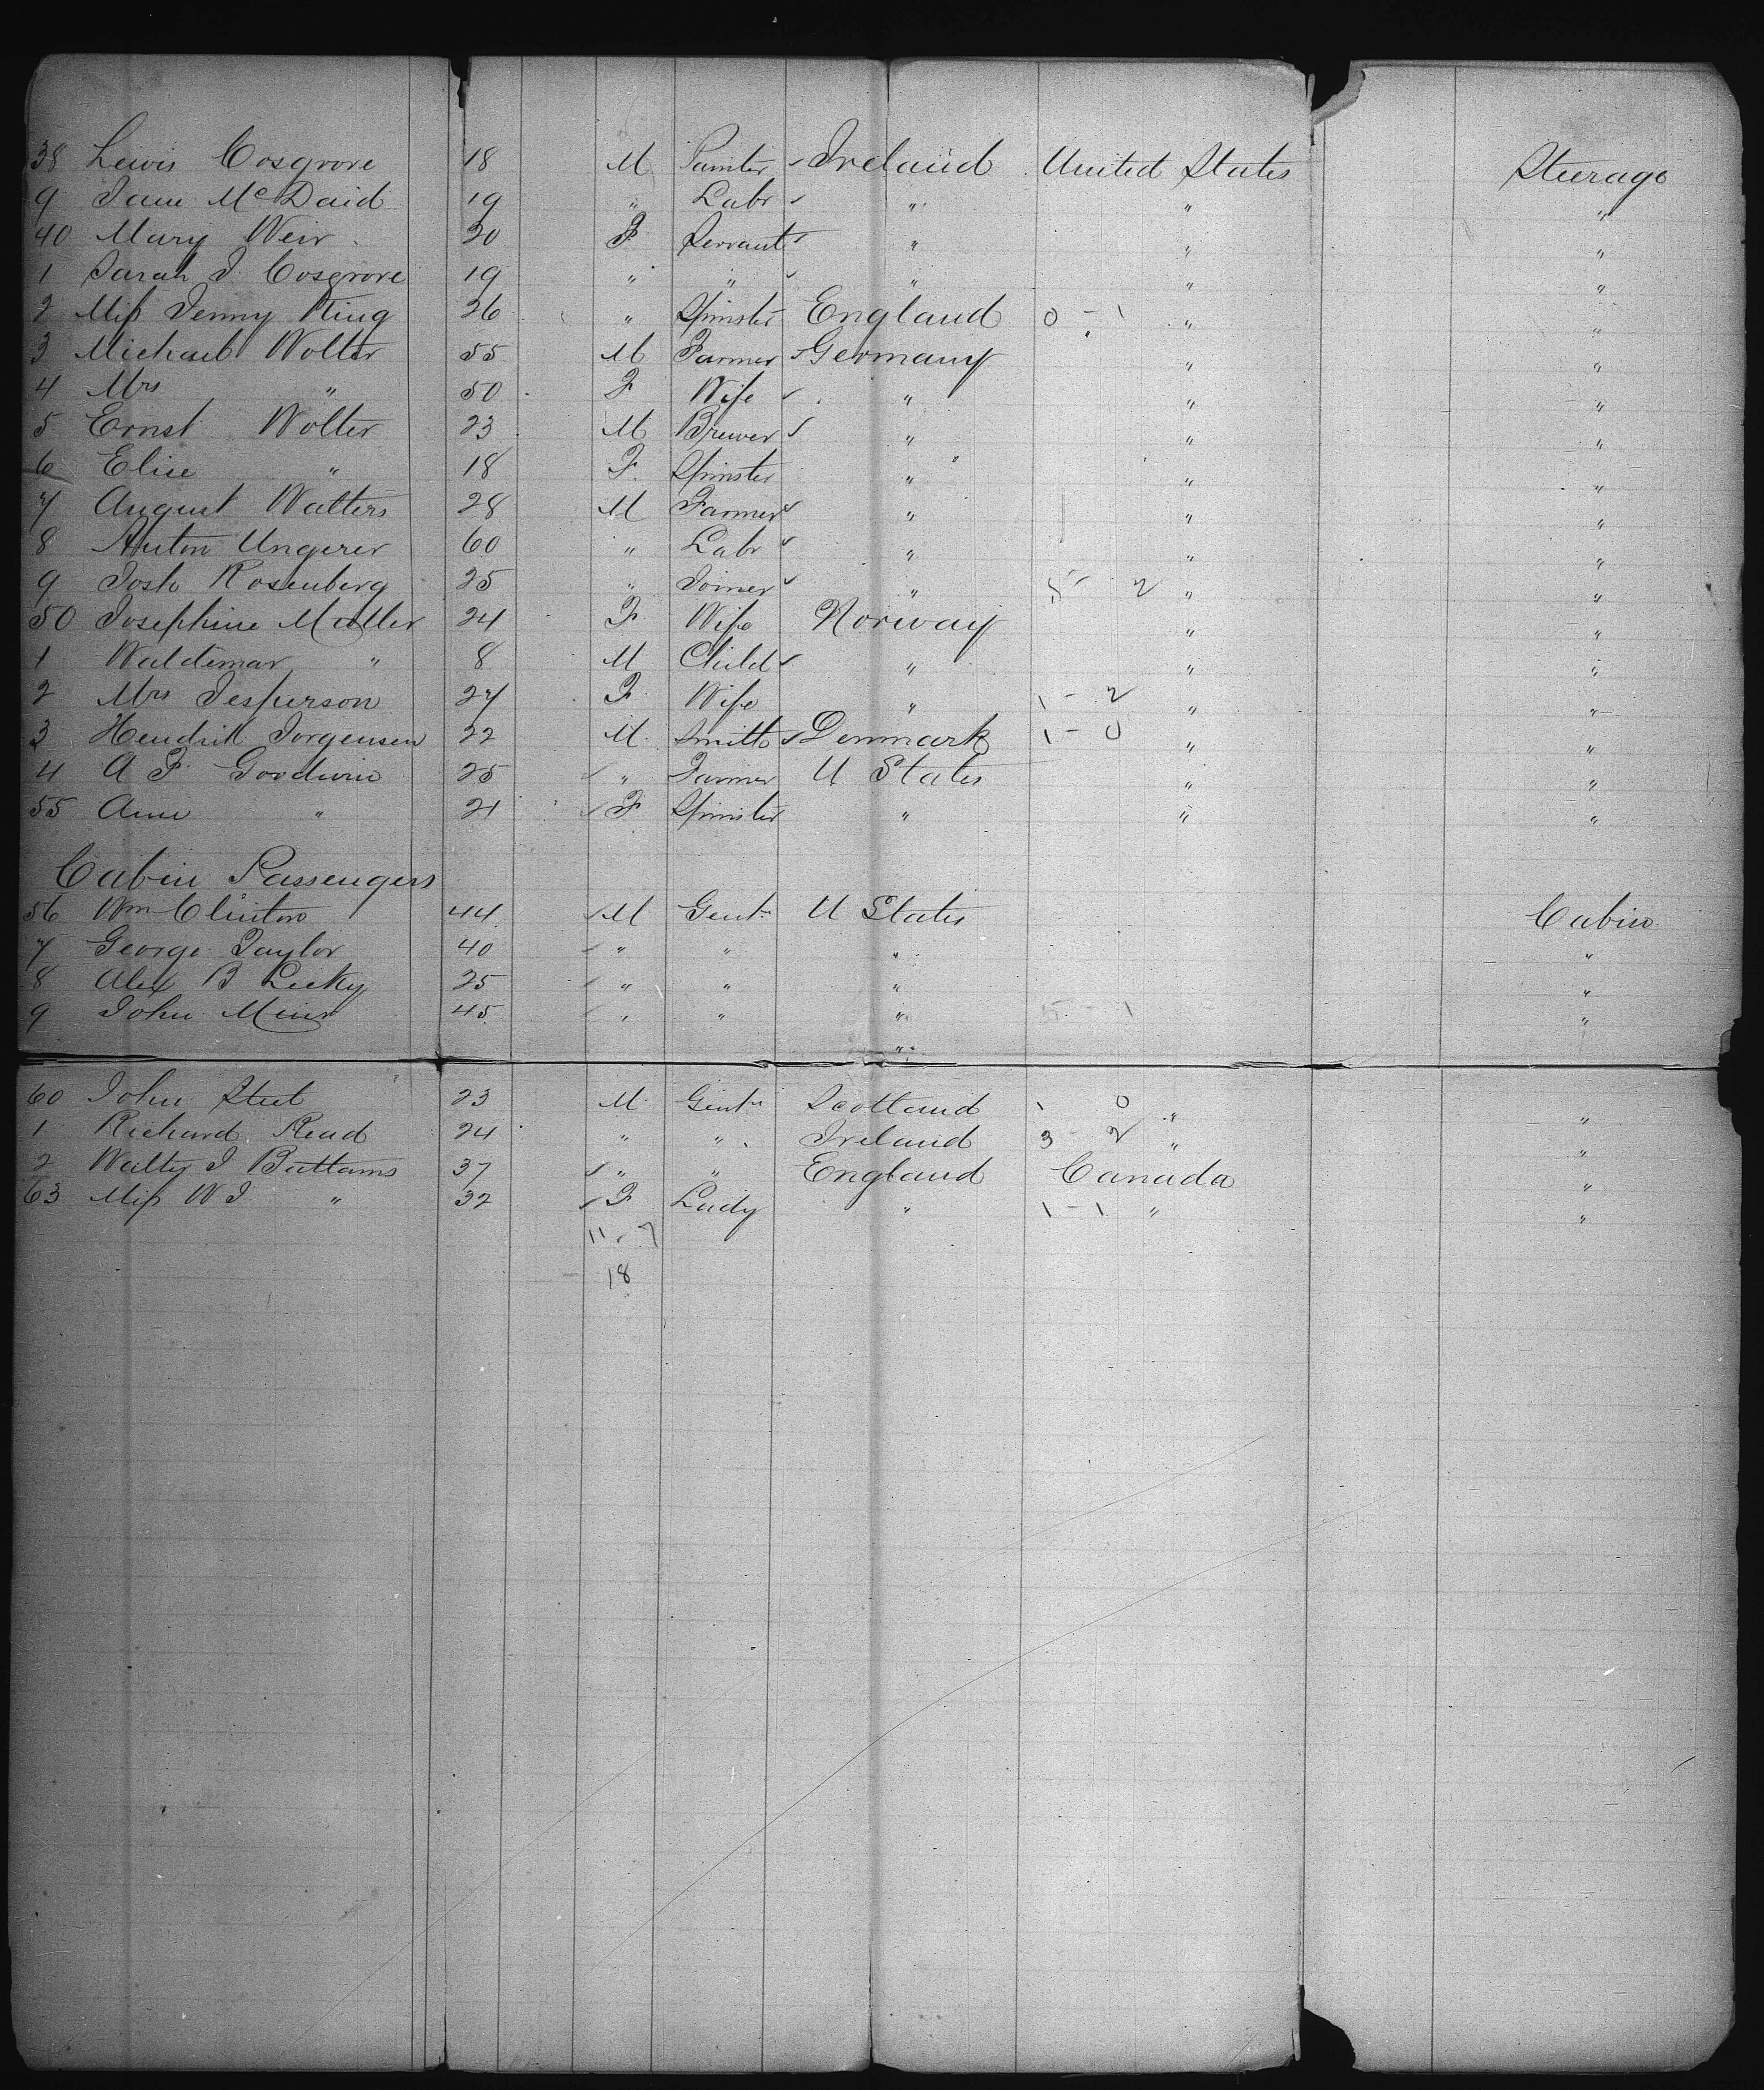 38 Lewis Cosgrove 18 M Painter ✓ Ireland United States Steerage
9 Jane McDaid 19 " Labr ✓ " " "
40 Mary Weir 20 F Servant ✓ " " "
1 Sarah J. Cosgrove 19 " " ✓ " " "
2 Miss Jenny King 26 " Spinster England 0 - 1 " "
3 Michael Wolter 55 M Farmer ✓ Germany " "
4 Mrs " 50 F Wife ✓ " " "
5 Ernst Wolter 23 M Brewer ✓ " " "
6 Elise " 18 F. Spinster " " "
7 August Walters 28 M Farmer ✓ " " "
8 Anton Ungerer 60 " Labr ✓ " " "
9 Josh Rosenberg 25 " Joiner ✓ " 5 - 2 " "
50 Josephine Muller 24 F Wife Norway " "
1 Waldemar " 8 M Child ✓ " " "
2 Mrs Jesperson 27 F Wife " 1 - 2 " "
3 Hendrik Jorgensen 22 M. Smith ✓ Denmark 1 - 0 " "
4 A F. Goodwin 25 ✓ " Farmer U States " "
55 Anne " 21 ✓ F Spinster " " "
Cabin Passengers
56 Wm Clinton 44 ✓ M Gent. U States Cabin
7 George Taylor 40 ✓ " " " "
8 Alex B Lecky 25 ✓ " " " "
9 John Muir 45 ✓ " " " 5 - 1 "
"
60 John Steel 23 M. Gent. Scotland 1 0 " "
1 Richard Read 24 " " Ireland 3 - 2 " "
2 Walty J Battams 37 ✓ " " England Canada "
63 Miss W J. " 32 ✓ F Lady " 1 - 1 " "
11 . 7
18